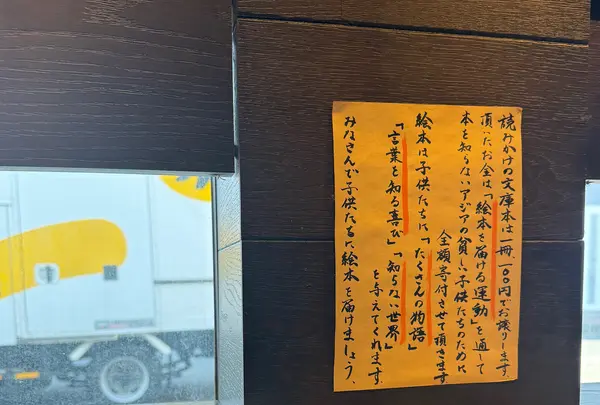 読みかけの文庫本は一冊、一〇〇円でお譲りします。
頂いたお金は「絵本を届ける運動」を通して
本を知らないアジアの貧しい子供たちのために
全額寄付させて頂きます
絵本は子供たちに「たくさんの物語」
「言葉を知る喜び」「知らない世界」
を与えてくれます。
みなさんで子供たちに絵本を届けましょう、